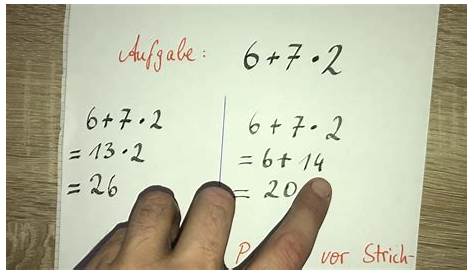 Aufgabe: 6+7·2
6+7·2
= 13·2
= 26
6+7·2
= 6+14
= 20
P vor Strich-